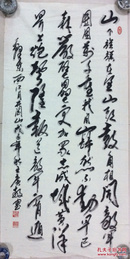 山下旌旗在望山头鼓角相闻敌军
围困万千重我自岿然不动早已
森严壁垒更加众志成城黄洋
界上炮声隆报道敌军宵遁
西江月井冈山